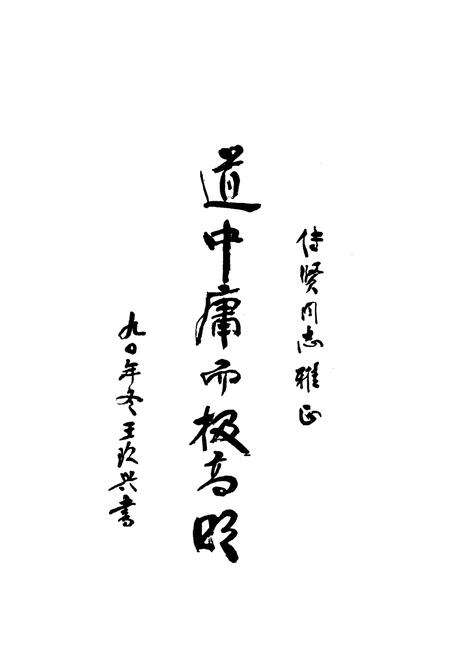 传贤同志雅正
道中庸而极高明
九〇年冬王玖兴书